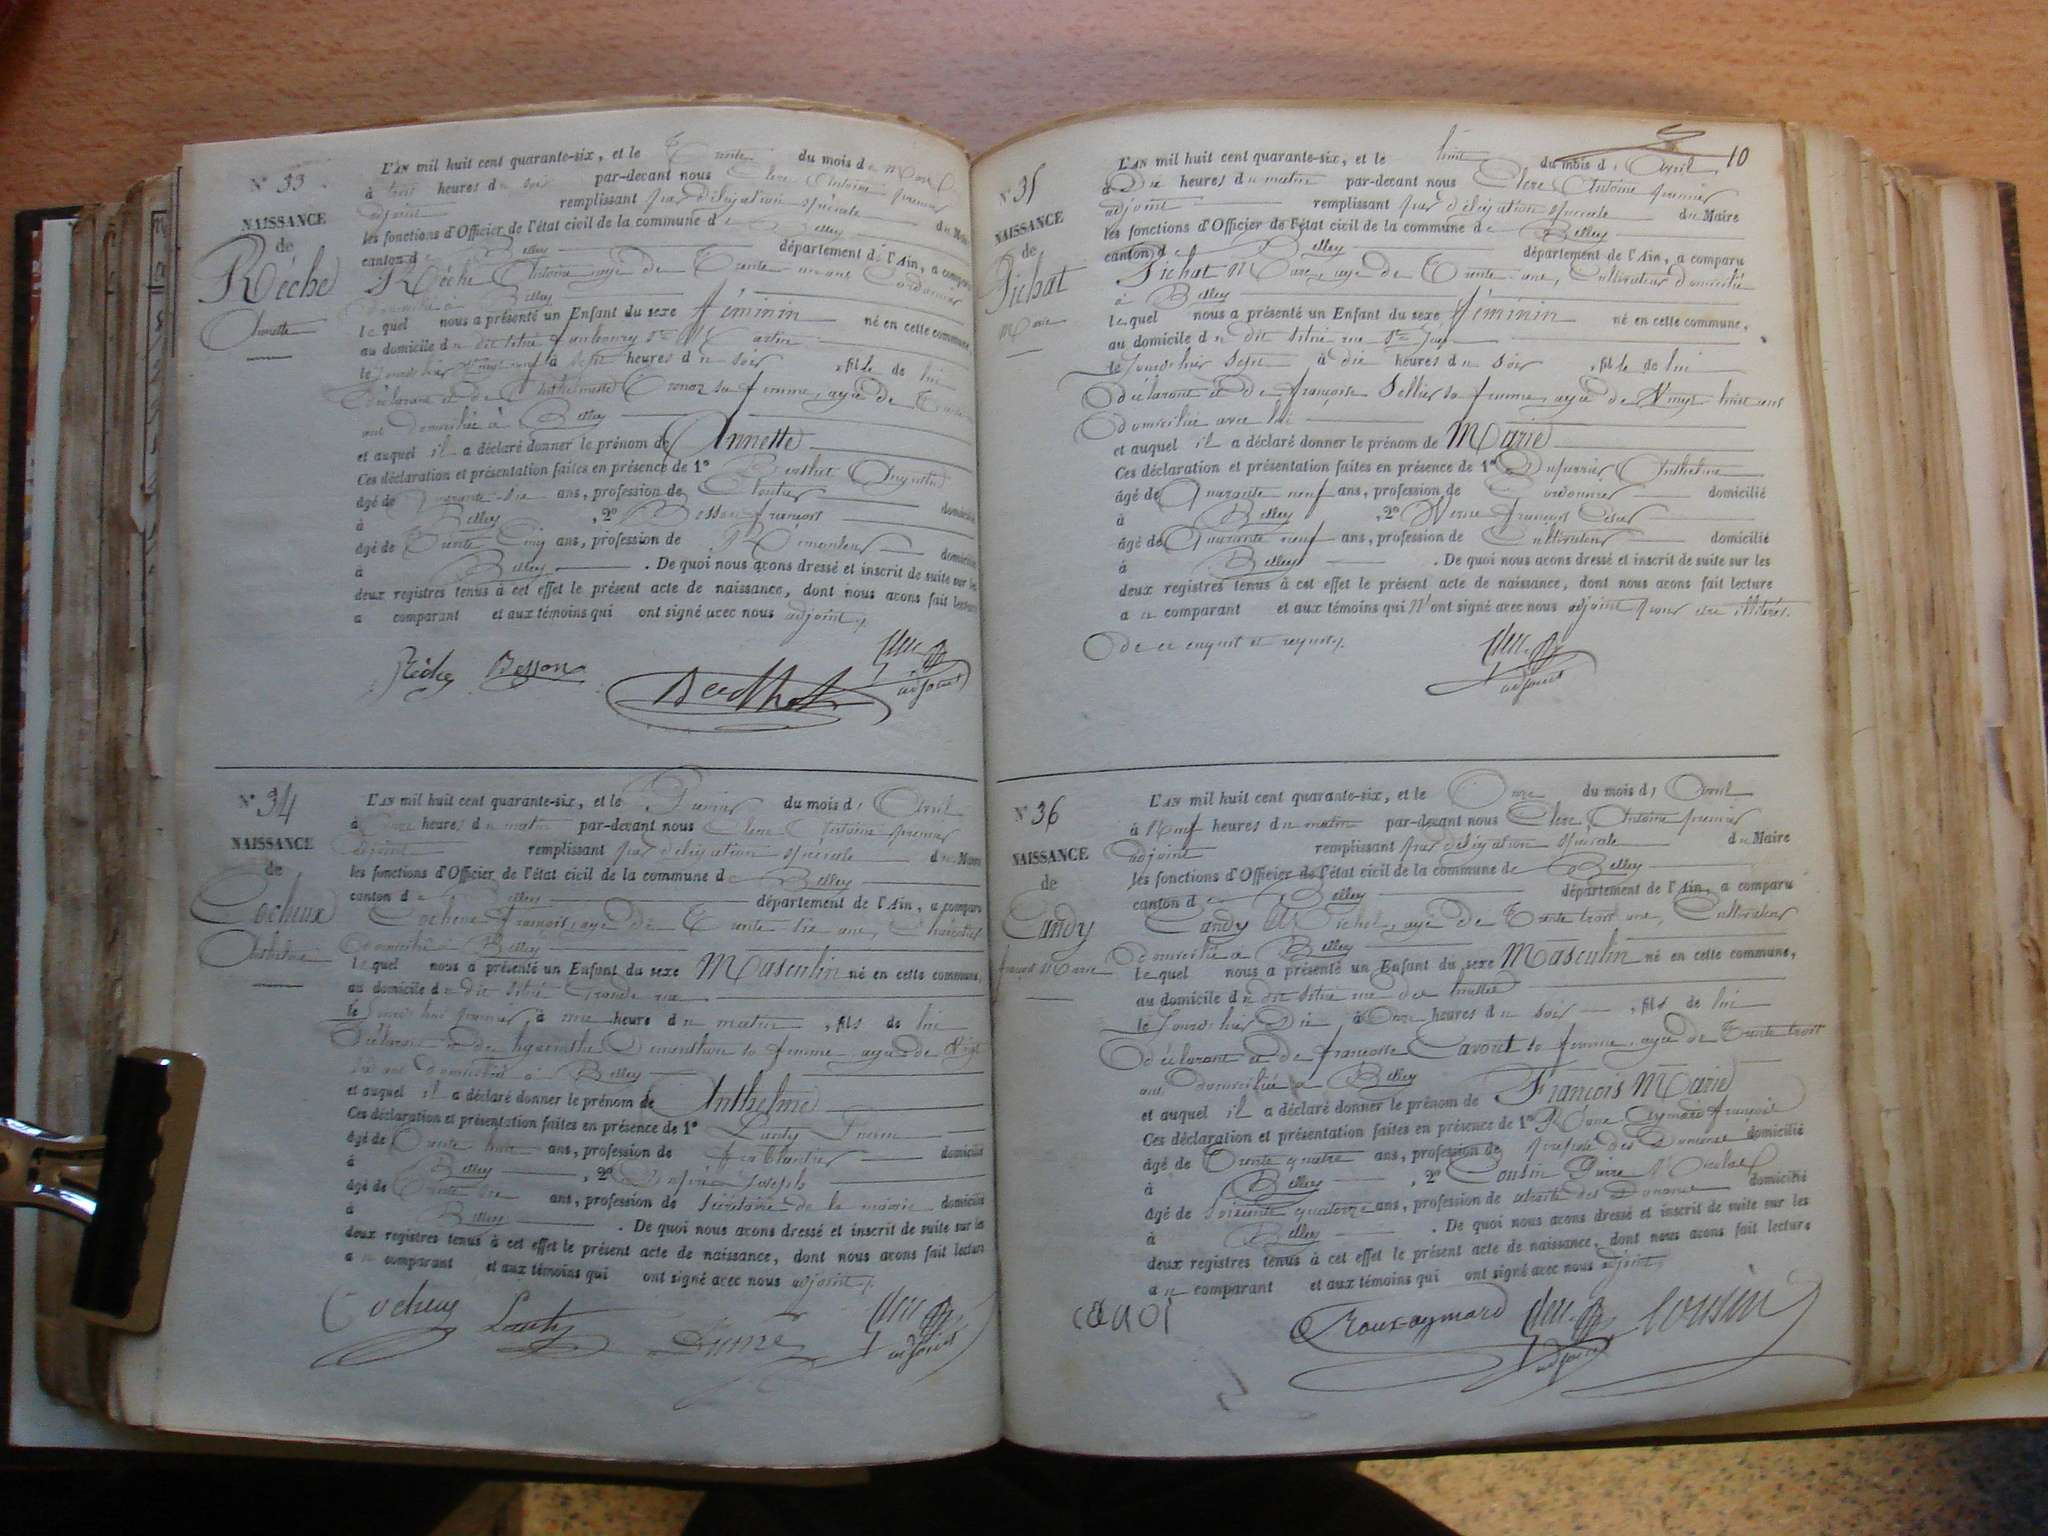 N° 33
NAISSANCE
de
Réche
Annette
L'AN mil huit cent quarante-six, et le Trente du mois de Mars
à trois heures du soir par-devant nous Clerc Antoine premier
adjoint remplissant par délégation spéciale du Maire
les fonctions d'Officier de l'état civil de la commune de Belley
canton de Belley département de l'Ain, a comparu
Réche Antoine age de Trente un ans Cordonnier
domicilié à Belley
lequel nous a présenté un Enfant du sexe féminin né en cette commune,
au domicile du dit situé faubourg St Martin
le jour à sept heures du soir, fille de lui
déclarant et de Anthelmette sa femme, agée de
ans domiciliée à Belley
et auquel il a déclaré donner le prénom de Annette
Ces déclaration et présentation faites en présence de 1° Berthet
âgé de Quarante six ans, profession de Cloutier domicilié
à Belley, 2° Besson françois
âgé de Trente Cinq ans, profession de domicilié
à Belley. De quoi nous avons dressé et inscrit de suite sur les
deux registres tenus à cet effet le présent acte de naissance, dont nous avons fait lecture
au comparant et aux témoins qui ont signé avec nous adjoint
Réche Besson Berthet Clerc
adjoint
N° 34
NAISSANCE
de
Cocheux
Anthelme
L'AN mil huit cent quarante-six, et le Premier du mois d'Avril
à Onze heures du matin par-devant nous Clerc Antoine premier
adjoint remplissant par délégation spéciale du Maire
les fonctions d'Officier de l'état civil de la commune de Belley
canton de Belley département de l'Ain, a comparu
Cocheux françois, agé de Trente six ans,
domicilié à Belley
lequel nous a présenté un Enfant du sexe Masculin né en cette commune,
au domicile du dit situé Grande rue
le jourd'hui premier, à une heure du matin, fils de lui
déclarant et de hyacinthe Dementhon sa femme, agée de Vingt
six ans domiciliée à Belley
et auquel il a déclaré donner le prénom de Anthelme
Ces déclaration et présentation faites en présence de 1° Lanty Pierre
âgé de Trente huit ans, profession de ferblantier domicilié
à Belley, 2° Joseph
âgé de Trente six ans, profession de Sécrétaire de la mairie domicilié
à Belley. De quoi nous avons dressé et inscrit de suite sur les
deux registres tenus à cet effet le présent acte de naissance, dont nous avons fait lecture
au comparant et aux témoins qui ont signé avec nous adjoint
Lanty Clerc
adjoint
10
N° 35
NAISSANCE
de
Pichat
Marie
L'AN mil huit cent quarante-six, et le huit du mois d'Avril
à Dix heures du matin par-devant nous Clerc Antoine premier
adjoint remplissant par délégation spéciale du Maire
les fonctions d'Officier de l'état civil de la commune de Belley
canton de Belley département de l'Ain, a comparu
Pichat Marc, age de Trente ans, Cultivateur domicilié
à Belley
lequel nous a présenté un Enfant du sexe féminin né en cette commune,
au domicile du dit situé rue
le jour d'hier Sept à dix heures du soir, fille de lui
déclarant et de françoise Sellier sa femme, agée de Vingt huit ans
domiciliée avec lui
et auquel il a déclaré donner le prénom de Marie
Ces déclaration et présentation faites en présence de 1° Anthelme
âgé de Quarante neuf ans, profession de Cordonnier domicilié
à Belley, 2° françois César
âgé de Quarante neuf ans, profession de Cultivateur domicilié
à Belley. De quoi nous avons dressé et inscrit de suite sur les
deux registres tenus à cet effet le présent acte de naissance, dont nous avons fait lecture
au comparant et aux témoins qui N'ont signé avec nous adjoint pour être illitérés
de ce enquis et requis
Clerc
adjoint
N° 36
NAISSANCE
de
Candy
françois Marie
L'AN mil huit cent quarante-six, et le Onze du mois d'Avril
à Neuf heures du matin par-devant nous Clerc Antoine premier
adjoint remplissant par délégation spéciale du Maire
les fonctions d'Officier de l'état civil de la commune de Belley
canton de Belley département de l'Ain, a comparu
Candy Michel, agé de Trente trois ans, Cultivateur
domicilié à Belley
lequel nous a présenté un Enfant du sexe Masculin né en cette commune,
au domicile du dit situé rue des
le jour d'hier Dix à Onze heures du soir, fils de lui
déclarant et de francoise Cavout sa femme, agée de Trente trois
ans domiciliée à Belley
et auquel il a déclaré donner le prénom de François Marie
Ces déclaration et présentation faites en présence de 1° Roux Aymard françois
âgé de Trente quatre ans, profession de des Domaine domicilié
à Belley, 2° Cousin Pierre Nicolas
âgé de Soixante quatorze ans, profession de retraité des Douanes domicilié
à Belley. De quoi nous avons dressé et inscrit de suite sur les
deux registres tenus à cet effet le présent acte de naissance, dont nous avons fait lecture
au comparant et aux témoins qui ont signé avec nous adjoint
Roux-aymard Clerc Cousin
adjoint